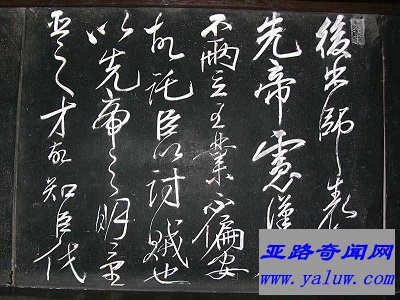 後出師表
先帝慮漢
不兩立王業不偏安
故託臣以討賊也
以先帝之明量
臣之才故知臣伐
亚路奇闻网
www.yaluw.com